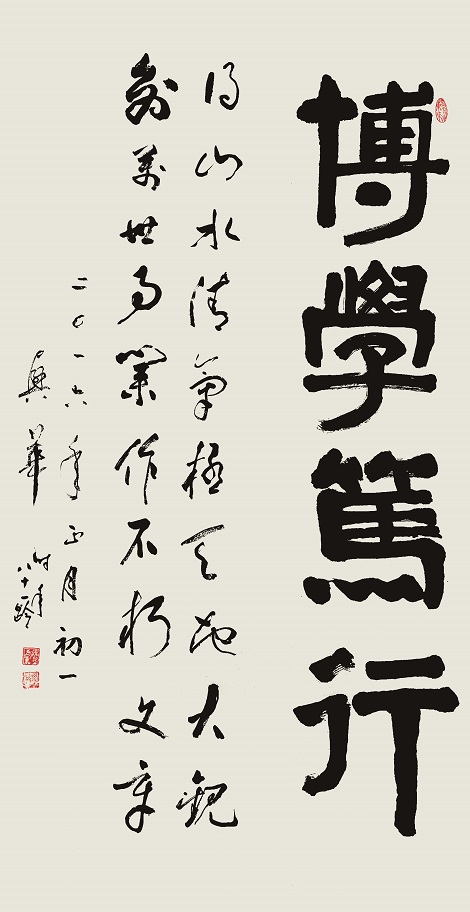 博學篤行
得山水清氣極天地大觀
萬世事業作不朽文章
二〇一六年正月初一
華
時年